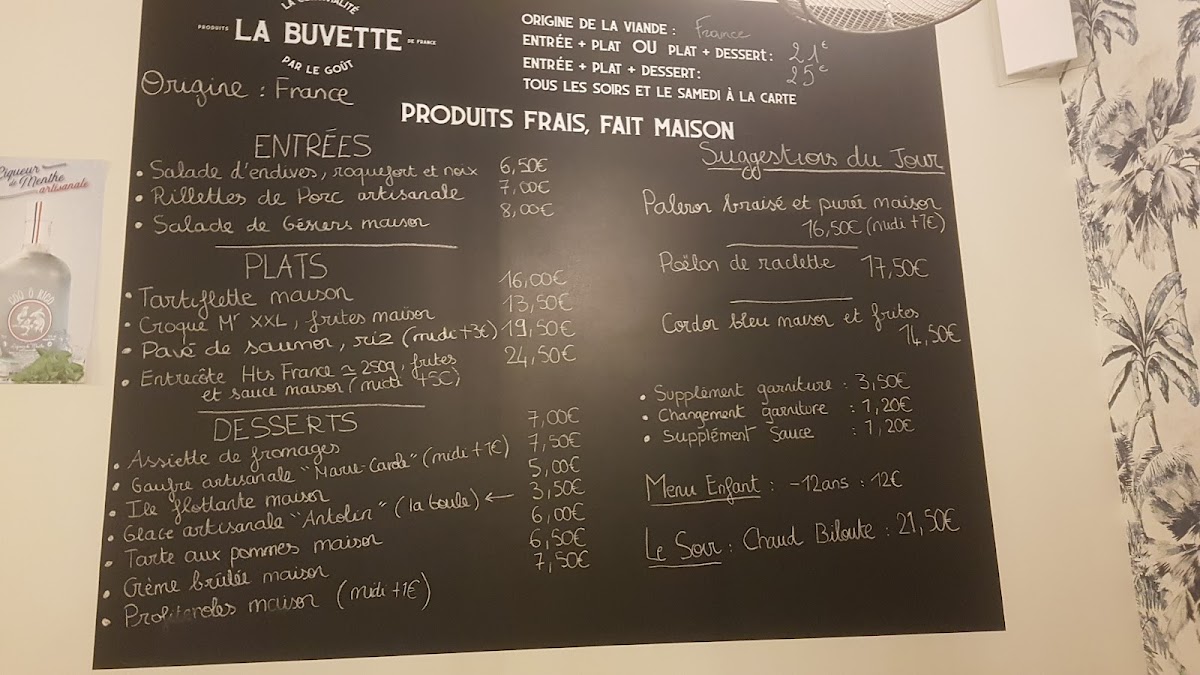 LA CONVIVIALITÉ
PRODUITS LA BUVETTE DE FRANCE
PAR LE GOÛT
Origine : France
ORIGINE DE LA VIANDE : France
ENTRÉE + PLAT OU PLAT + DESSERT : 21€
ENTRÉE + PLAT + DESSERT : 25€
TOUS LES SOIRS ET LE SAMEDI À LA CARTE
PRODUITS FRAIS, FAIT MAISON
ENTRÉES
• Salade d'endives, roquefort et noix 6,50€
• Rillettes de Porc artisanale 7,00€
• Salade de Gésiers maison 8,00€
PLATS
• Tartiflette maison 16,00€
• Croque Mr XXL, frites maison 13,50€
• Pavé de saumon, riz (midi +3€) 19,50€
• Entrecôte Hts France ≃ 250g, frites 24,50€
et sauce maison (midi +5€)
DESSERTS
• Assiette de fromages 7,00€
• Gaufre artisanale "Marie-Carole" (midi +1€) 7,50€
• Ile flottante maison 5,00€
• Glace artisanale "Antolin" (la boule) ← 3,50€
• Tarte aux pommes maison 6,00€
• Crème brûlée maison 6,50€
• Profiteroles maison (midi +1€) 7,50€
Suggestions du Jour
Paleron braisé et purée maison
16,50€ (midi +1€)
Poêlon de raclette 17,50€
Cordon bleu maison et frites
14,50€
• Supplément garniture : 3,50€
• Changement garniture : 1,20€
• Supplément Sauce : 1,20€
Menu Enfant : -12ans : 12€
Le Soir : Chaud Biloute : 21,50€
Liqueur
de Menthe
artisanale